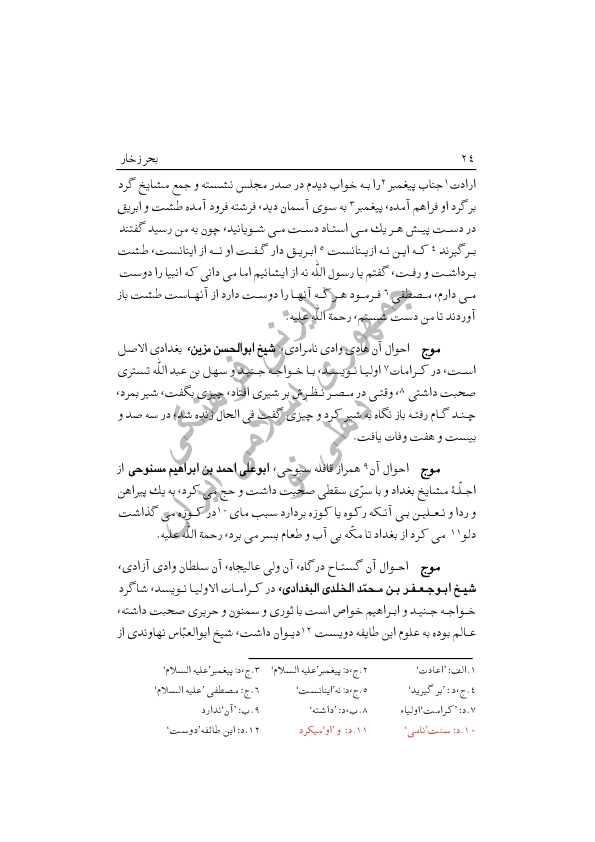 ۲٤ بحر زخار
ارادت۱ جناب پیغمبر۲ را به خواب دیدم در صدر مجلس نشسته و جمع مشایخ گرد
برگرد او فراهم آمده، پیغمبر۳ به سوی آسمان دید، فرشته فرود آمده طشت و ابریق
در دست پیش هر یك می استاد دست می شویانید، چون به من رسید گفتند
برگیرند ٤ که این نه ازینانست ٥ ابریق دار گفت او نه از اینانست، طشت
برداشت و رفت، گفتم یا رسول اللّه نه از ایشانیم اما می دانی که انبیا را دوست
می دارم، مصطفی ٦ فرمود هر که آنها را دوست دارد از آنهاست طشت باز
آوردند تا من دست شستم، رحمة اللّه علیه.
موج احوال آن هادی وادی نامرادی، شیخ ابوالحسن مزین، بغدادی الاصل
است، در کرامات۷ اولیا نویسد، با خواجه جنید و سهل بن عبد اللّه تستری
صحبت داشتی ۸، وقتی در مصر نظرش بر شیری افتاد، چیزی بگفت، شیر بمرد،
چند گام رفته باز نگاه به شیر کرد و چیزی گفت فی الحال زنده شد، در سه صد و
بیست و هفت وفات یافت.
موج احوال آن۹ همراز قافله سبوحی، ابوعلی احمد بن ابراهیم مسنوحی از
اجلّۀ مشایخ بغداد و با سرّی سقطی صحبت داشت و حج می کرد، به یك پیراهن
و ردا و نعلین بی آنکه رکوه یا کوزه بردارد سبب مای ۱۰ در کوزه می گذاشت
دلو۱۱ می کرد از بغداد تا مکّه بی آب و طعام بسر می برد، رحمة اللّه علیه.
موج احوال آن گستاخ درگاه، آن ولی عالیجاه، آن سلطان وادی آزادی،
شیخ ابوجعفر بن محمّد الخلدی البغدادی، در کرامات الاولیا نویسد، شاگرد
خواجه جنید و ابراهیم خواص است با ثوری و سمنون و حریری صحبت داشته،
عالم بوده به علوم این طایفه دویست ۱۲ دیوان داشت، شیخ ابوالعبّاس نهاوندی از
۱.الف: ’اعادت‘ ۲.ج،د: پیغمبر’علیه السلام‘ ۳.ج،د: پیغمبر’علیه السلام‘
٤.ج،د : ’بر گیرید‘ ٥.ج،د: نه’اینانست‘ ٦.ج: مصطفی ’علیه السلام‘
۷.د: ’کراست‘اولیاء ۸.ب،د: ’داشته‘ ۹.ب: ’آن‘ندارد
۱۰.د: سنت’نامی‘ ۱۱.د: و ’او‘میکرد ۱۲.د: این طائفه’دوست‘
رایزنی فرهنگی
جمهوری اسلامی ایران
دهلی نو